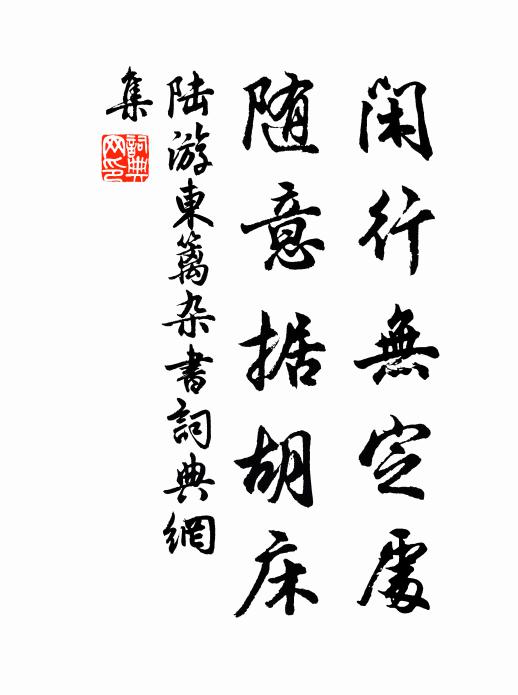 闲行無定處
随意据胡床
陆游東籬杂書詞典網
集
詞典网印